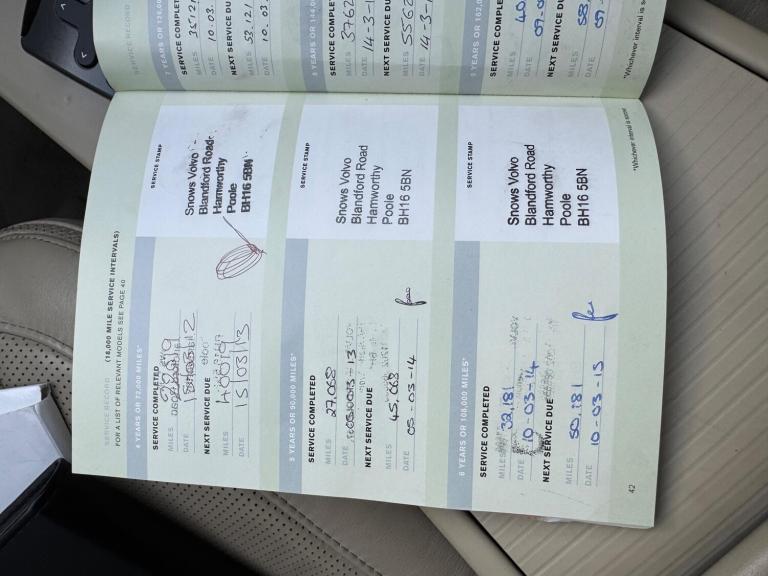 SERVICE RECORD (18,000 MILE SERVICE INTERVALS)
FOR A LIST OF RELEVANT MODELS SEE PAGE 40
4 YEARS OR 72,000 MILES*
SERVICE COMPLETED
MILES
DATE
NEXT SERVICE DUE
MILES
DATE 15/03/13
SERVICE STAMP
Snows Volvo
Blandford Road
Hamworthy
Poole
BH16 5BN
5 YEARS OR 90,000 MILES*
SERVICE COMPLETED
MILES 27,068
DATE
NEXT SERVICE DUE
MILES 45,068
DATE 05-03-14
SERVICE STAMP
Snows Volvo
Blandford Road
Hamworthy
Poole
BH16 5BN
6 YEARS OR 108,000 MILES*
SERVICE COMPLETED
MILES 32,181
DATE 10-03-14
NEXT SERVICE DUE
MILES 50,181
DATE 10-03-15
SERVICE STAMP
Snows Volvo
Blandford Road
Hamworthy
Poole
BH16 5BN
*Whichever interval is sooner
42
SERVICE RECORD
7 YEARS OR
SERVICE COMPLETED
MILES
DATE 10.03.
NEXT SERVICE DU
MILES
DATE 10.03.
8 YEARS OR 144,0
SERVICE COMPLE
MILES
DATE 14-3-1
NEXT SERVICE DU
MILES
DATE 14-3-1
9 YEARS OR 162,0
SERVICE COMPLE
MILES
DATE
NEXT SERVICE DUE
MILES
DATE
*Whichever interval is s